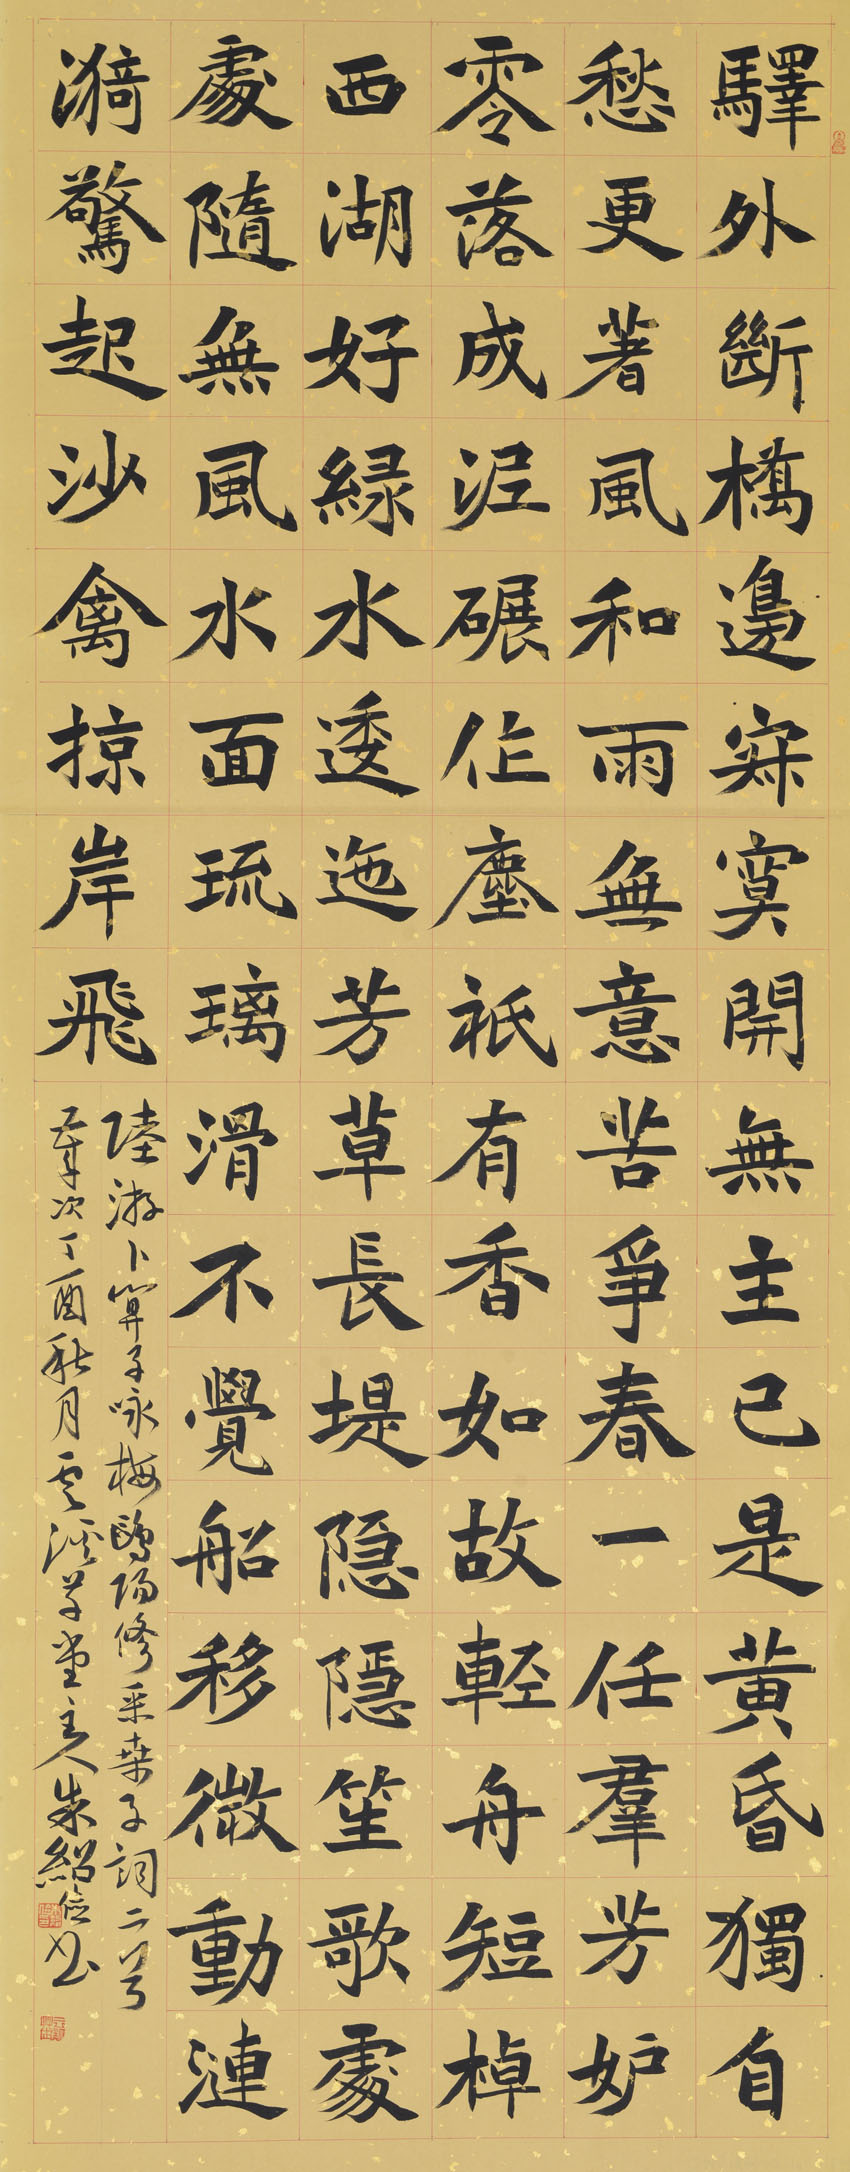 驛外斷橋邊寂寞開無主已是黃昏獨自
愁更著風和雨無意苦爭春一任羣芳妒
零落成泥碾作塵祇有香如故輕舟短棹
西湖好緑水逶迤芳草長堤隐隱笙歌處
處隨無風水面琉璃滑不覺船移微動漣
漪驚起沙禽掠岸飛
陸游卜算子咏梅鷗陽修采桑子詞二首
歲次丁酉秋月雲溪草堂主人朱紹俭书